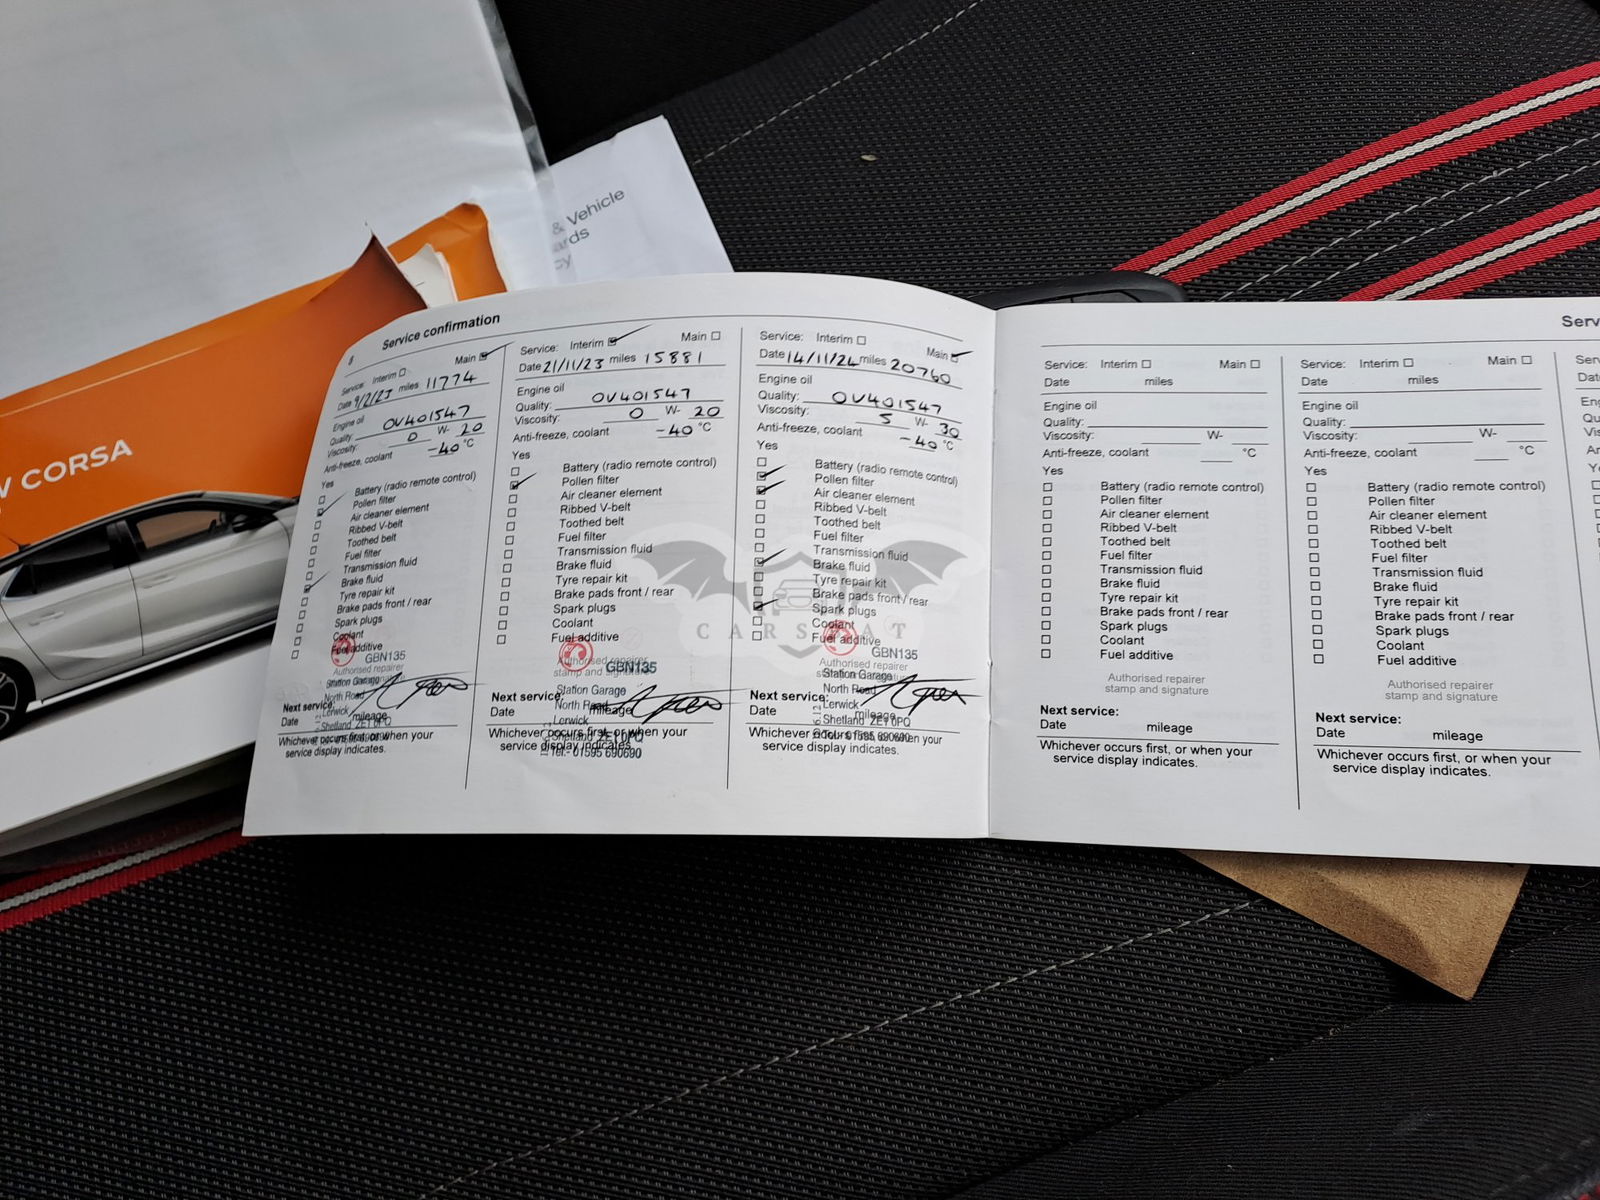 & Vehicle
ards
cy
W CORSA
8
Service confirmation
Service: Interim Main
Date 9/2/23 miles 11774
Engine oil
Quality: OV401547
Viscosity: 0 W- 20
Anti-freeze, coolant -40 °C
Yes
Battery (radio remote control)
Pollen filter
Air cleaner element
Ribbed V-belt
Toothed belt
Fuel filter
Transmission fluid
Brake fluid
Tyre repair kit
Brake pads front / rear
Spark plugs
Coolant
Fuel additive
GBN135
Authorised repairer
stamp and signature
Station Garage
North Road
Lerwick
Shetland ZE1 0PQ
Next service:
Date mileage
Whichever occurs first, or when your
service display indicates.
Service: Interim Main
Date 21/11/23 miles 15881
Engine oil
Quality: OV401547
Viscosity: 0 W- 20
Anti-freeze, coolant -40 °C
Yes
Battery (radio remote control)
Pollen filter
Air cleaner element
Ribbed V-belt
Toothed belt
Fuel filter
Transmission fluid
Brake fluid
Tyre repair kit
Brake pads front / rear
Spark plugs
Coolant
Fuel additive
Authorised repairer
stamp and signature
GBN135
Station Garage
North Road
Lerwick
Shetland ZE1 0PQ
Tel:- 01595 690690
Next service:
Date mileage
Whichever occurs first, or when your
service display indicates.
Service: Interim Main
Date 14/11/24 miles 20760
Engine oil
Quality: OV401547
Viscosity: 5 W- 30
Anti-freeze, coolant -40 °C
Yes
Battery (radio remote control)
Pollen filter
Air cleaner element
Ribbed V-belt
Toothed belt
Fuel filter
Transmission fluid
Brake fluid
Tyre repair kit
Brake pads front / rear
Spark plugs
Coolant
Fuel additive
GBN135
Authorised repairer
stamp and signature
Station Garage
North Road
Lerwick
Shetland ZE1 0PQ
Tel:- 01595 690690
Next service:
Date mileage
Whichever occurs first, or when your
service display indicates.
CARS AT
Serv
Service: Interim Main
Date miles
Engine oil
Quality:
Viscosity: W-
Anti-freeze, coolant °C
Yes
Battery (radio remote control)
Pollen filter
Air cleaner element
Ribbed V-belt
Toothed belt
Fuel filter
Transmission fluid
Brake fluid
Tyre repair kit
Brake pads front / rear
Spark plugs
Coolant
Fuel additive
Authorised repairer
stamp and signature
Next service:
Date mileage
Whichever occurs first, or when your
service display indicates.
Service: Interim Main
Date miles
Engine oil
Quality:
Viscosity: W-
Anti-freeze, coolant °C
Yes
Battery (radio remote control)
Pollen filter
Air cleaner element
Ribbed V-belt
Toothed belt
Fuel filter
Transmission fluid
Brake fluid
Tyre repair kit
Brake pads front / rear
Spark plugs
Coolant
Fuel additive
Authorised repairer
stamp and signature
Next service:
Date mileage
Whichever occurs first, or when your
service display indicates.